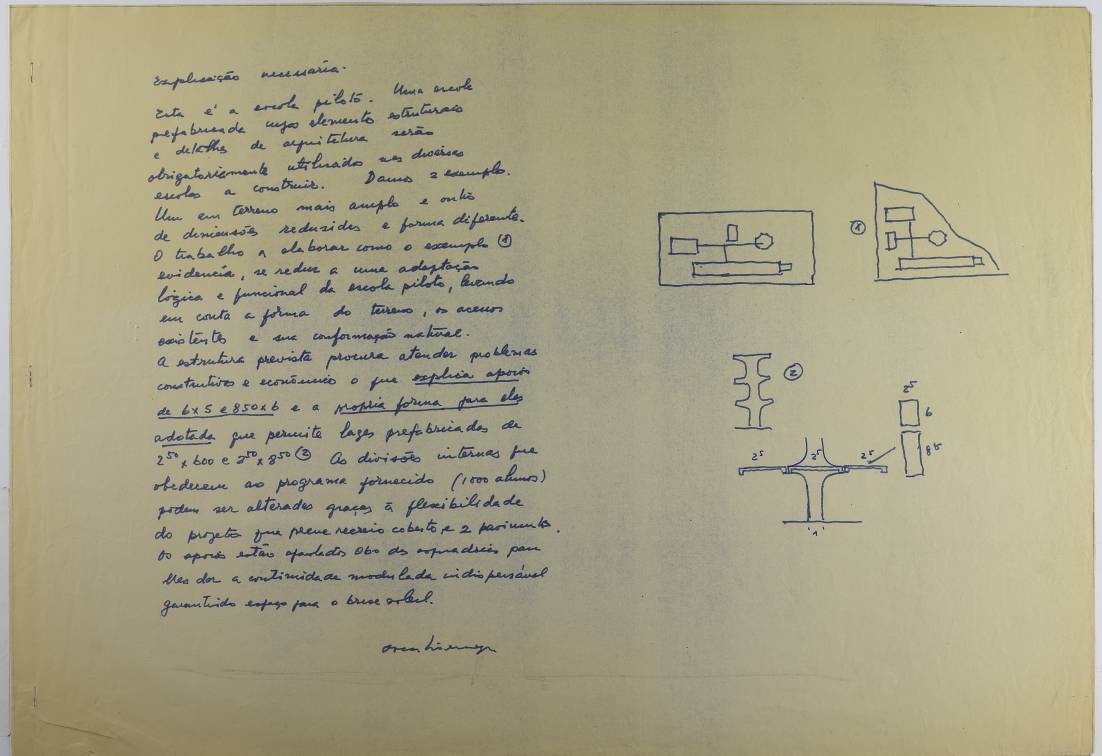 Explicação necessária.
Esta é a escola piloto. Uma escola
prefabricada cujos elemento estruturais
e detalhes de arquitetura serão
obrigatoriamente utilizados nas diversas
escolas a construir. Damos 2 exemplo.
Um em terreno mais amplo e outro
de dimensões reduzidas e forma diferente.
O trabalho a elaborar como o exemplo (1)
evidencia, se reduz a uma adaptação
lógica e funcional da escola piloto, levando
em conta a forma do terreno, os acessos
existentes e sua conformação natural.
A estrutura prevista procura atender problemas
construtivos e econômico o que explica apoios
de 6x5 e 850x6 e a propria forma para eles
adotada que permite lages prefabricadas de
2⁵⁰ x 600 e 2⁵⁰ x 8⁵⁰ (2) As divisões internas que
obedecem ao programa fornecido (1000 alunos)
podem ser alteradas graças à flexibilidade
do projeto que preve recreio coberto e 2 pavimentos.
Os apoios estão afastados 0.60 das esquadrias para
lhes dar a continuidade modulada indispensável
garantindo espaço para o brise soleil.
Oscar Niemeyer
1
2
2⁵
6
8⁵
2⁵ 2⁵ 2⁵
1